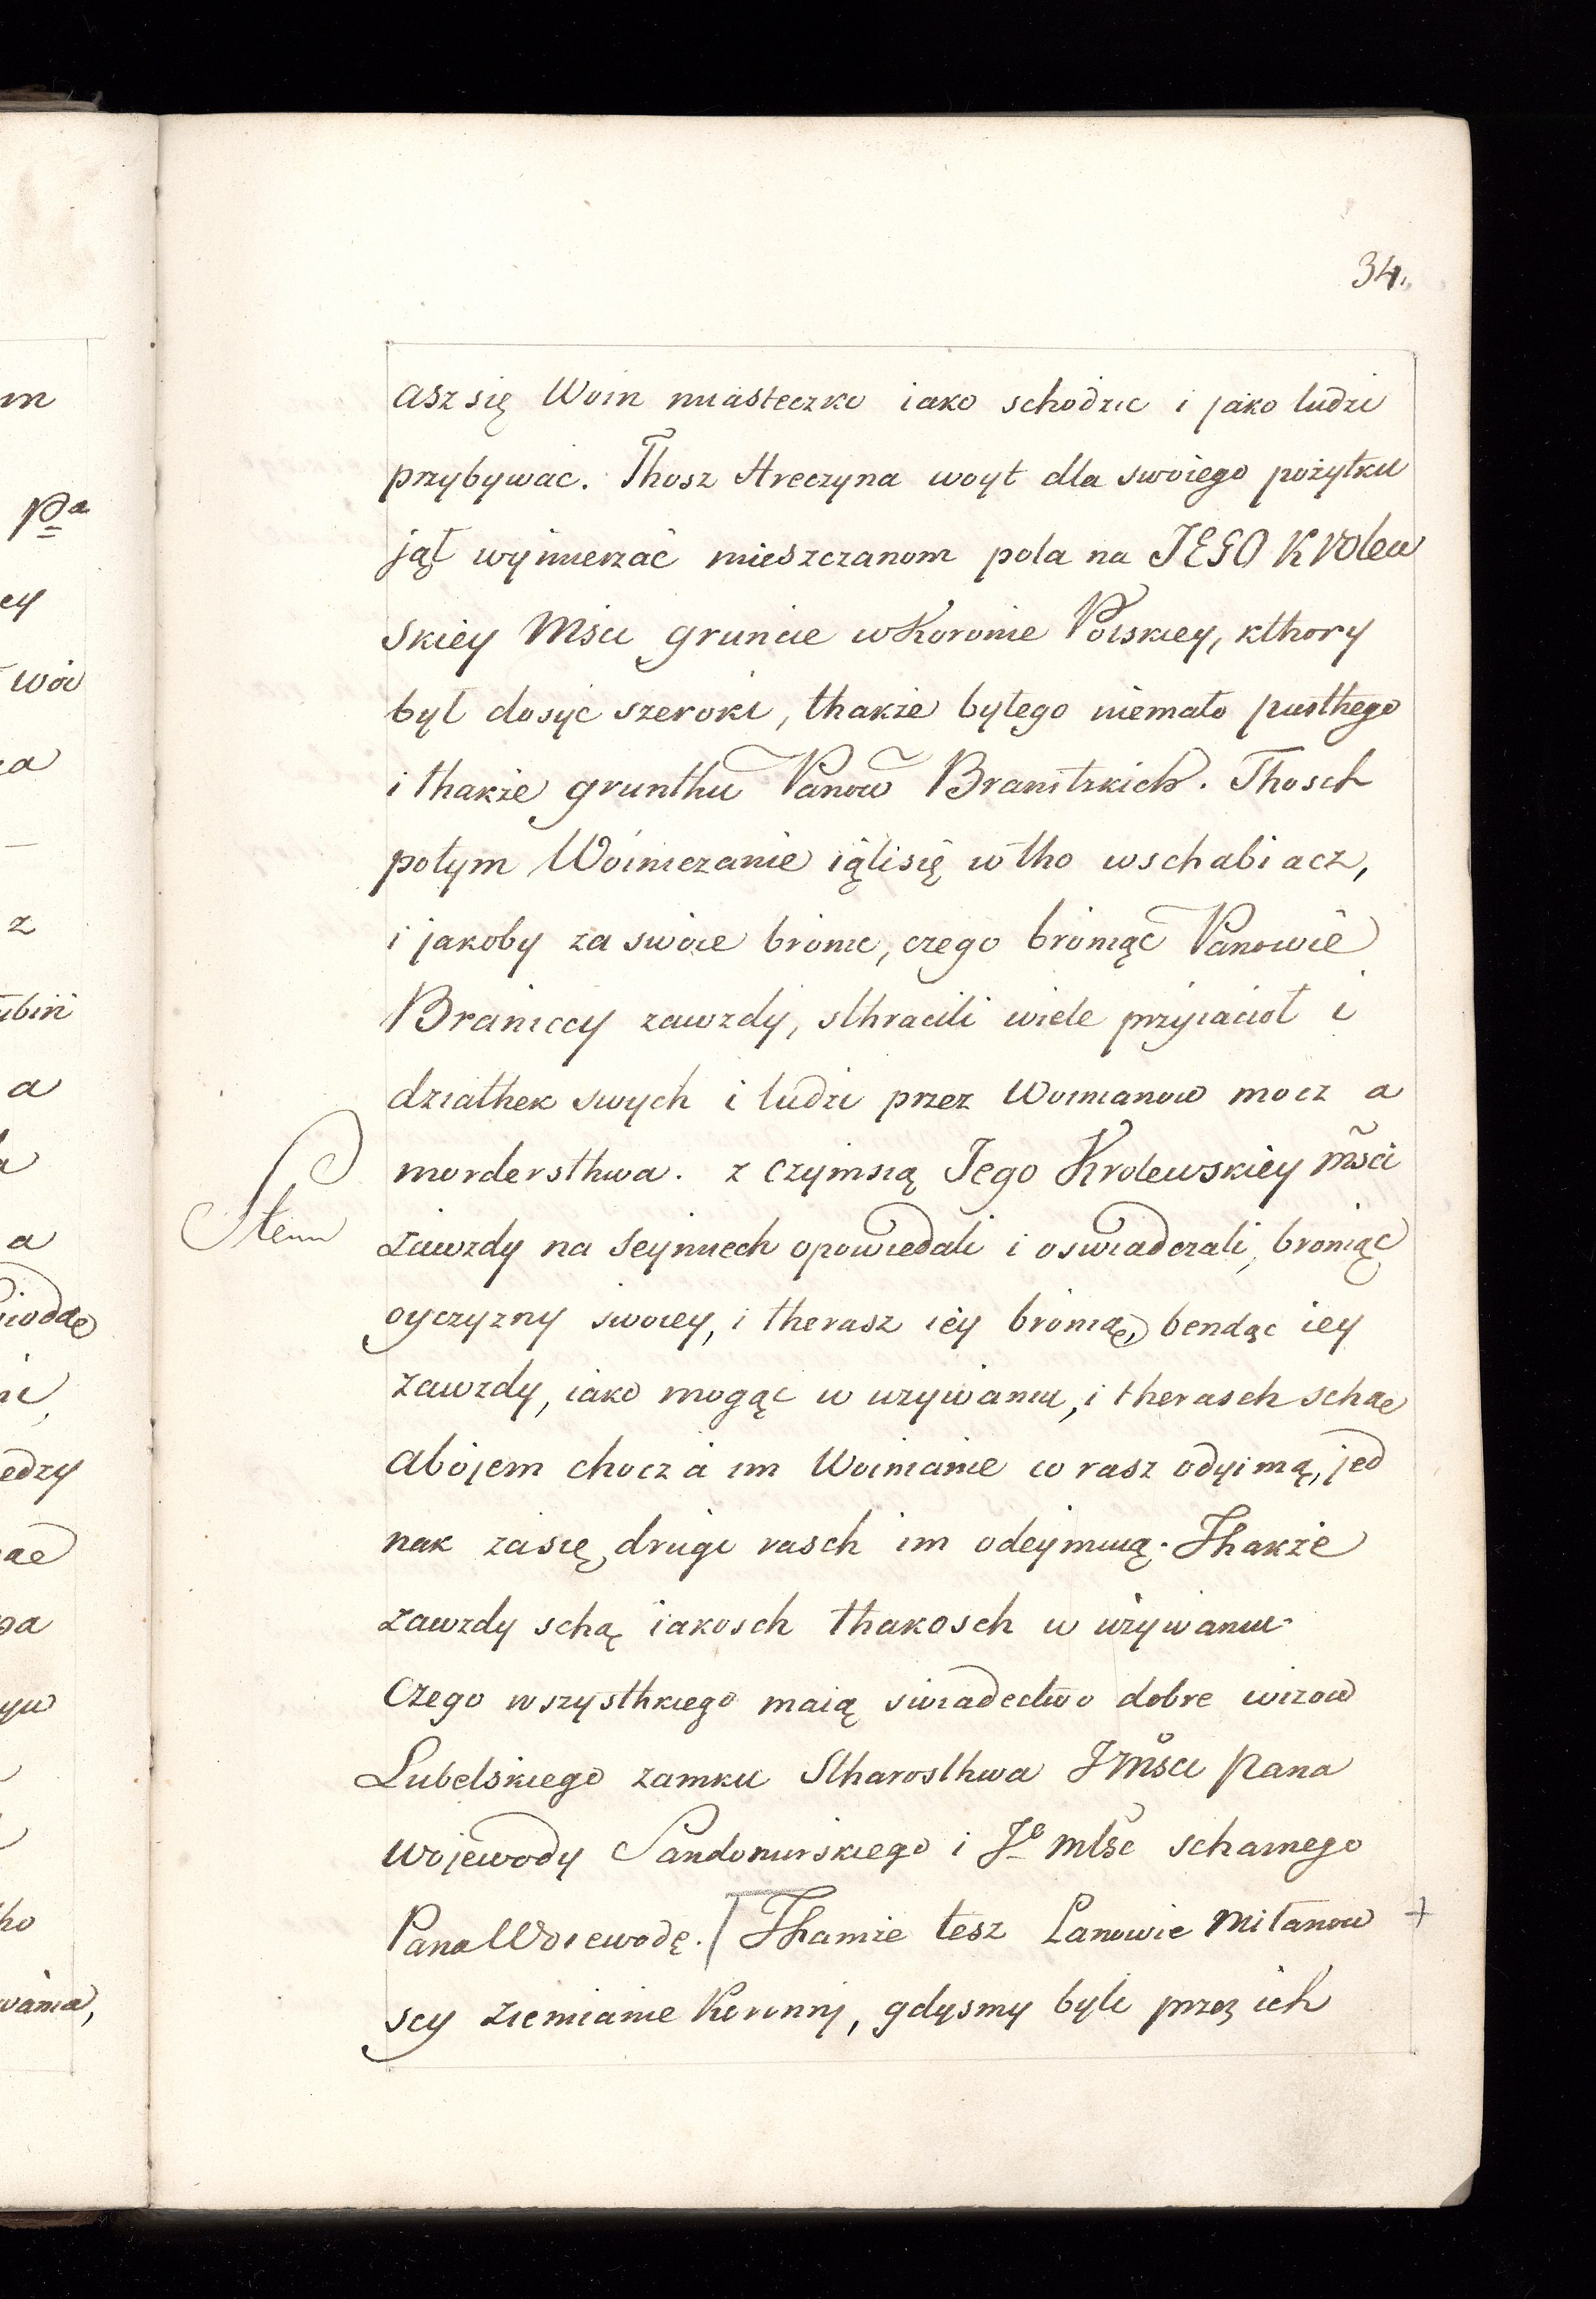 34.
asz się Woin miasteczko iako schodzic i jako ludzi
przybywac. Thosz Hreczyna woyt dla swoiego pożytku
jął wymierzać mieszczanom pola na JEGO Krolew
skiey Mści gruncie w Koronie Polskiey, kthory
był dosyc szeroki, thakże byłego niemało pusthego
i thakże grunthu Panow Branitzkich. Thosch
potym Woinczanie ięlisię w tho wschabiacz,
i jakoby za swoie bronic, czego broniąc Panowie
Braniccy zawzdy, sthracili wiele przyiacioł i
dziathek swych i ludzi przez Woinianow mocz a
mordersthwa. z czymsią Jego Krolewskiey mści
Item
zawzdy na seymiech opowiedali i oswiadczali, broniąc
oyczyzny swoiey, i therasz iey bronią, bendąc iey
zawzdy, iako mogąc w uzywaniu, i therasch schae
abojem chocz a im Woinianie co rasz odyimą, jed
nak zasię drugi rasch im odeymuą. Thakże
zawzdy schą iakosch thakosch w używaniu
Czego wszysthkiego maią swiadectwo dobre wizow
Lubelskiego zamku Stharosthwa Jmści Pana
Wojewody Sandomirskiego i Jº młśc schamego
Pana Woiewodę. Thamże tesz Panowie Miłanow +
scy ziemianie Koronni, gdysmy byli przez ich
m
pª
ey
woi
a
z
a
a
edzy
ae
yw
ho
wania,